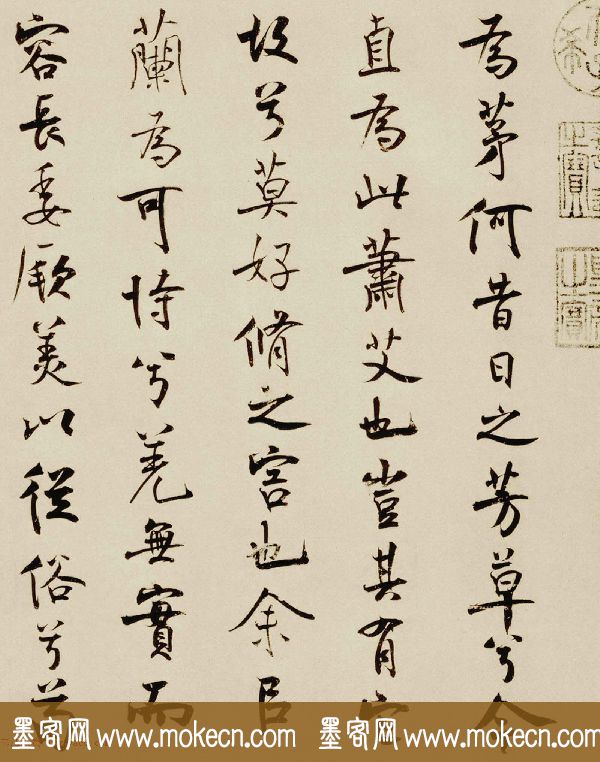 為茅何昔日之芳草兮今
直為此蕭艾也豈其有它
故兮莫好脩之害也余㠯
蘭為可恃兮羌無實而
容長委厥美以從俗兮
墨客网 www.mokecn.com 墨客网 www.mokecn.com